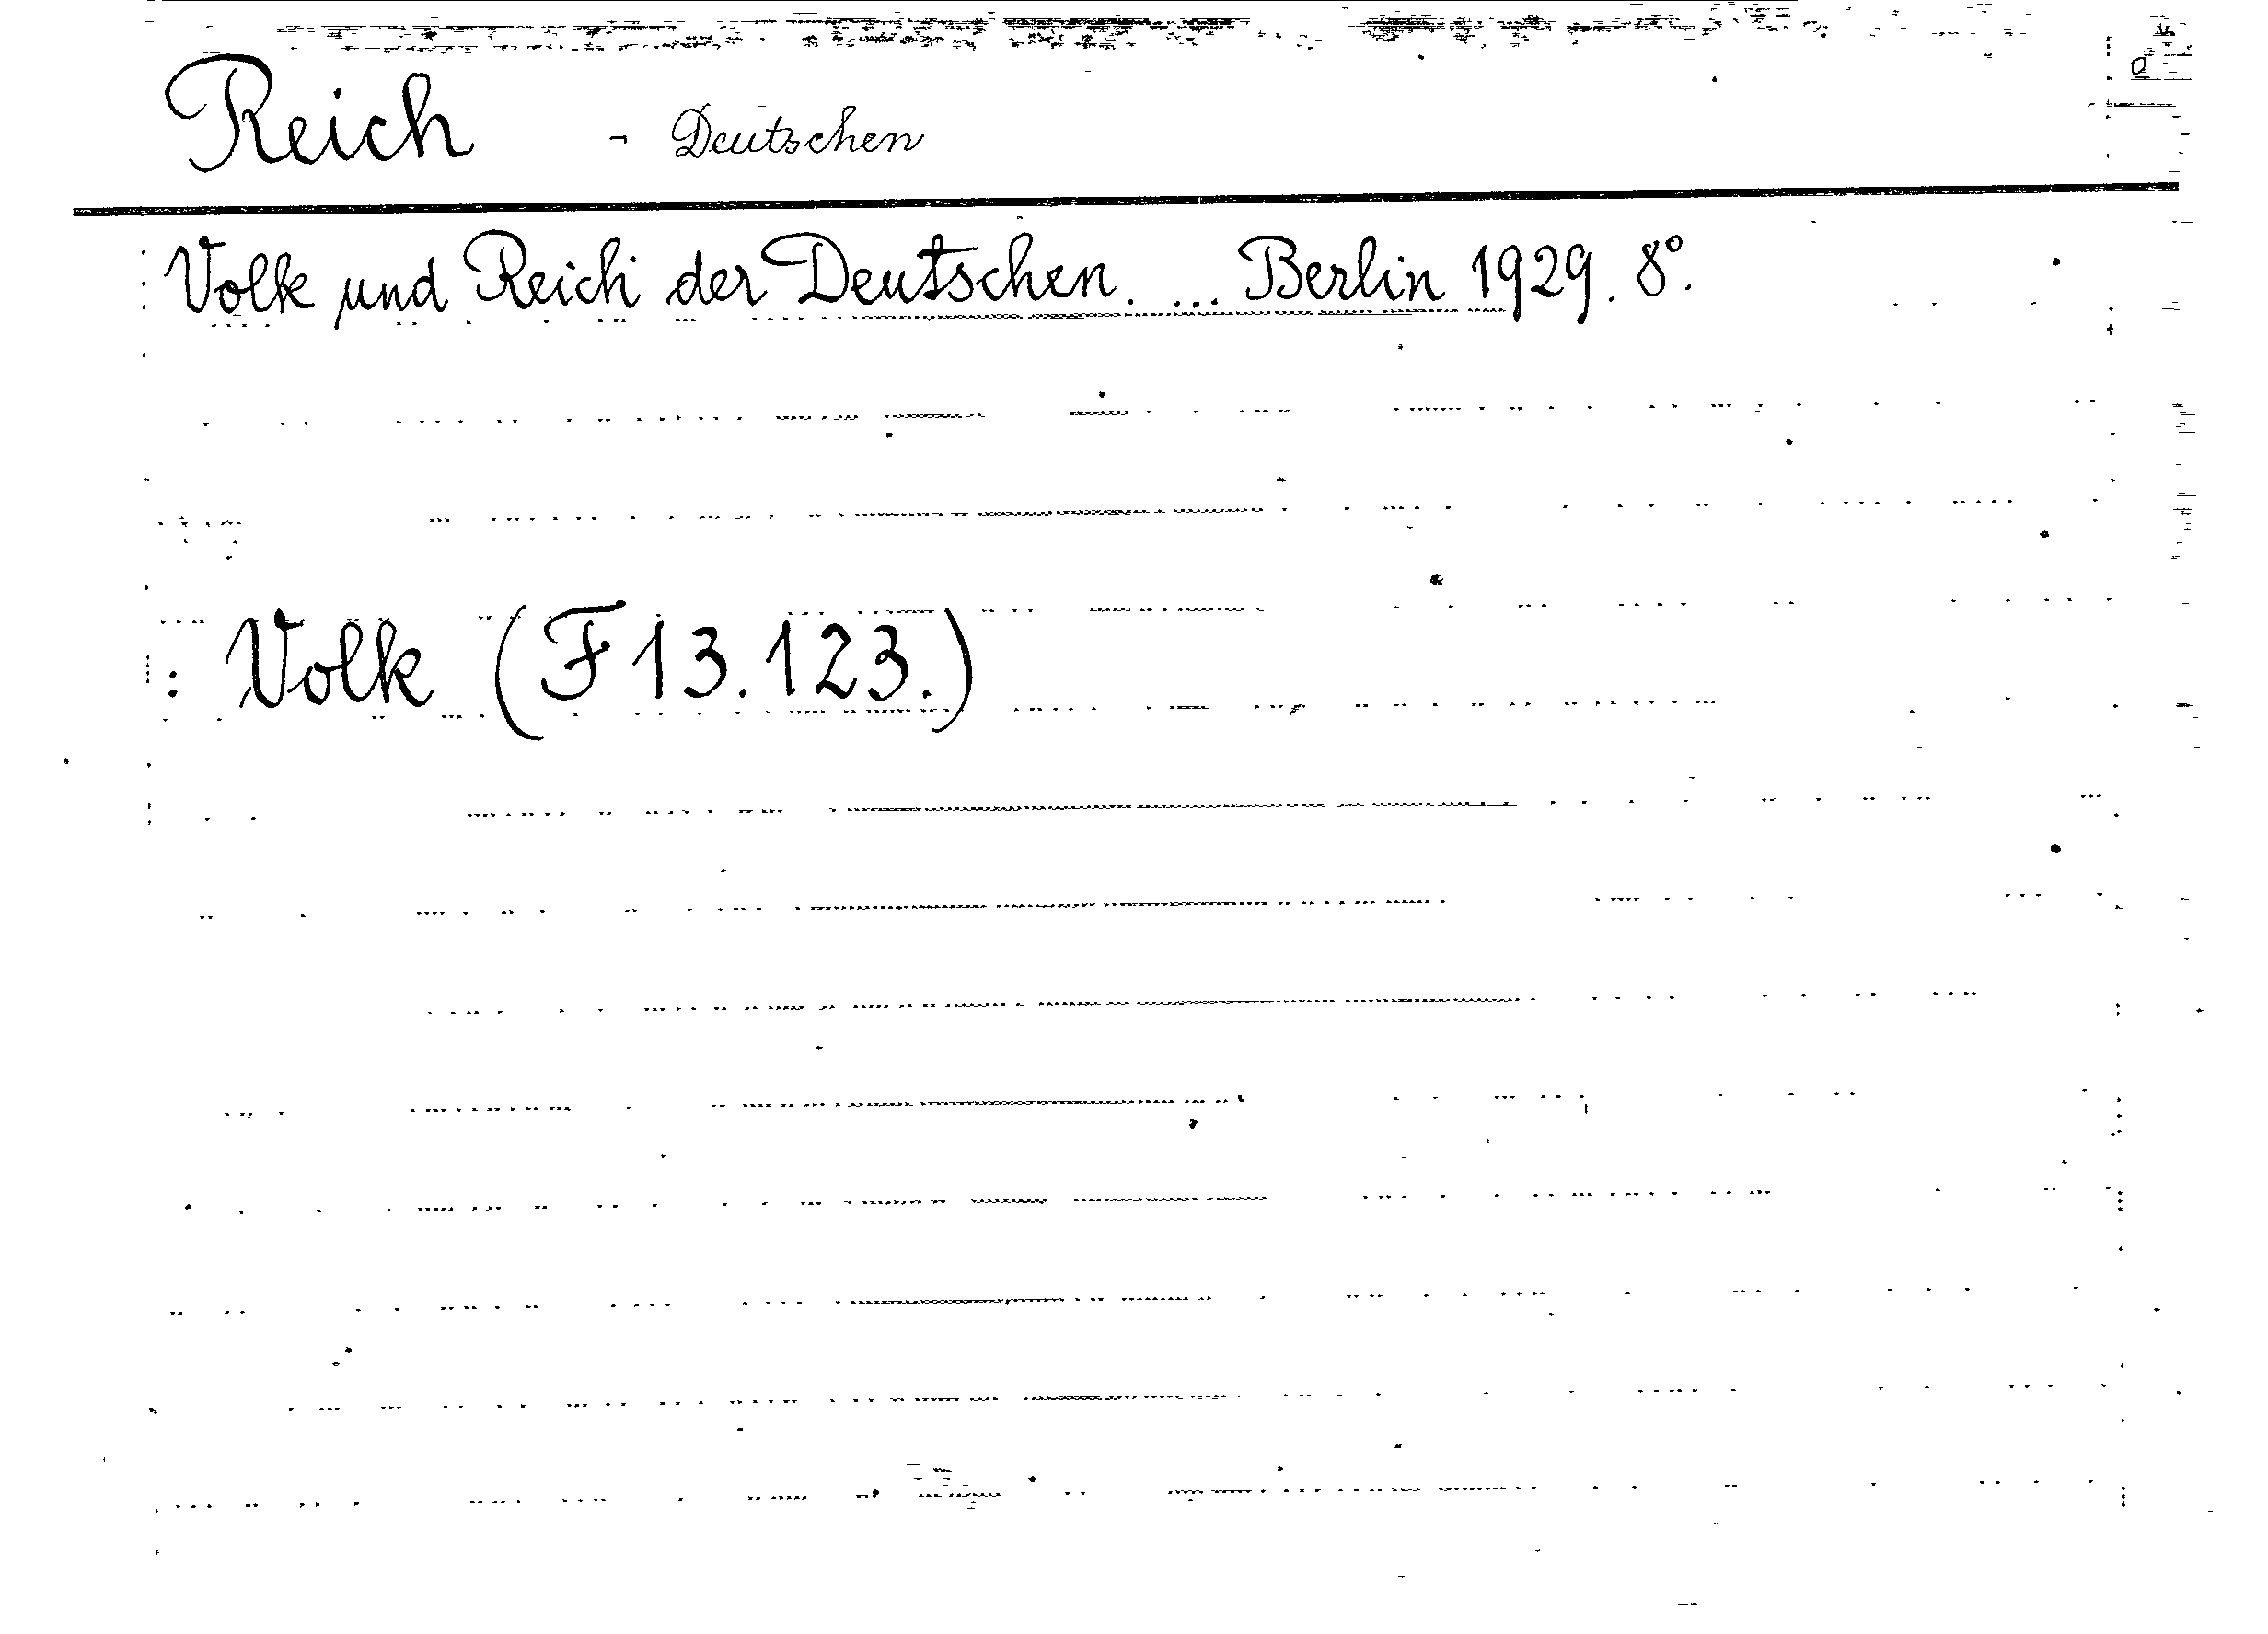 Reich - Deutschen
Volk und Reich der Deutschen. ... Berlin 1929. 8°.
: Volk (F 13.123.)